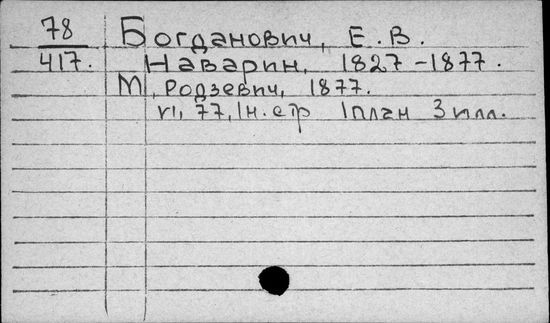 78 Богданович, Е. В.
417. Наварин, 1827-1877.
М, Родзевич, 1877.
VI, 77, 1н. стр 1план 3 илл.